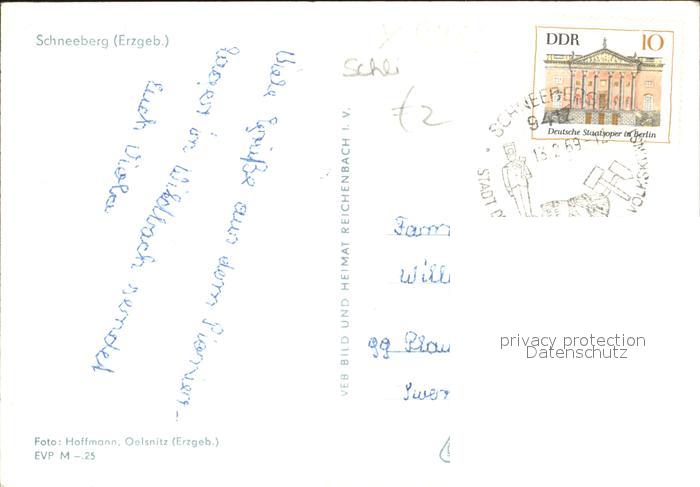 Schneeberg (Erzgeb.)
Schli
DDR 10
Deutsche Staatsoper in Berlin
SCHNEEBERG
9412
13.2.69-12
STADT D
VOLKSKUNS
Viele Grüße aus dem Pionier-
lager in
Euch
sendet
VEB BILD UND HEIMAT REICHENBACH I. V.
Fam
Will
99 Plau
privacy protection
Datenschutz
Foto: Hoffmann, Oelsnitz (Erzgeb.)
EVP M –.25